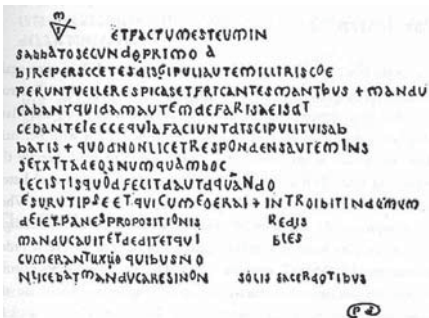 ETFACTUMESTEUMIN
SABBATOSECUNDOPRIMO A
BIREPERSCCETESDISGIPULIAUTEMILLIRISCOE
PERUNTVELLERESPICASETFRICANTESMANTBUS + MANDU
CABANTQUIDAMAUTEMDEFARISAEISDT
CEBANTEIECCEQUIAFACIUNTDTSCIPULITVISAB
BATIS + QUODNONLICETRESPONDENSAUTEMINS
SETXTTADEOSNUMQUAMBOC
LECISTISQUODFECITDAUTDQUANDO
ESURUTIPSEETQUICUMEOERAT + INTROIBITINDOMUM
DEIETPANESPROPOSITIONIS REDIS
MANDUCAUITETDEDITETQUI BLES
CUMERANTUXUO QUIBUSNO
NLICEBATMANDUCARESINON SOLIS SACERDOTIBUS
PD